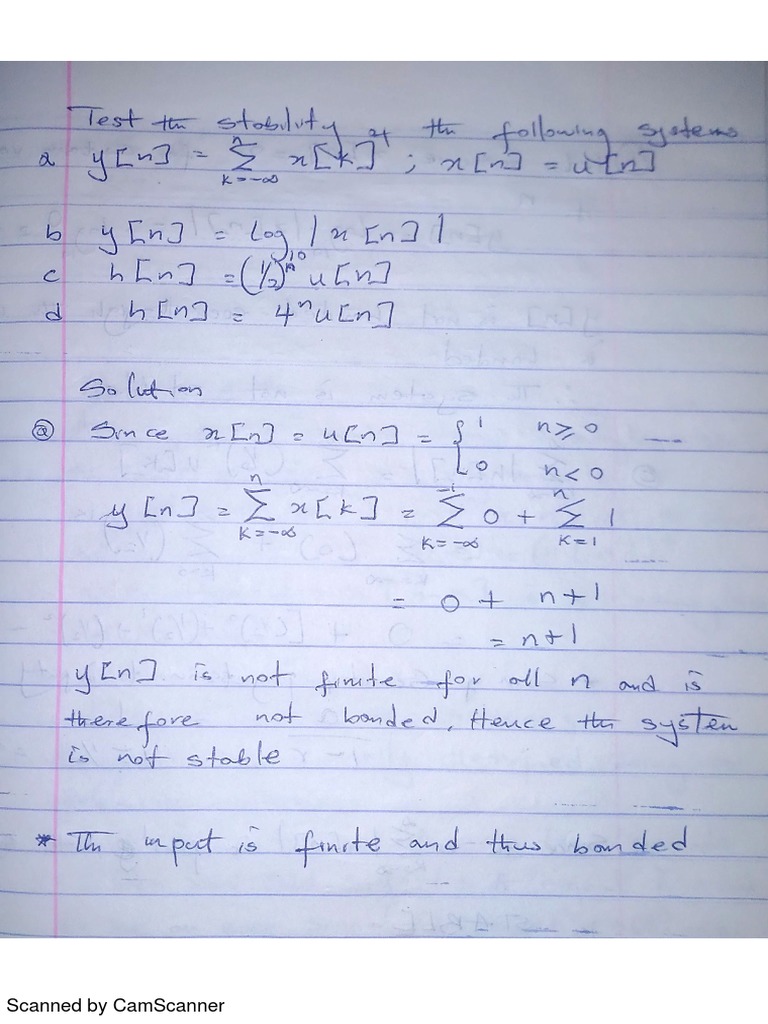 Test the stability of the following systems
a y[n] = n Σ k=-∞ x[k] ; x[n] = u[n]
b y[n] = log10 |x[n]|
c h[n] = (1/2)^n u[n]
d h[n] = 4^n u[n]
Solution
ⓐ Since x[n] = u[n] = { 1 n≥0
0 n<0
y[n] = n Σ k=-∞ x[k] = -1 Σ k=-∞ 0 + n Σ k=1 1
= 0 + n+1
= n+1
y[n] is not finite for all n and is
therefore not bonded, Hence the system
is not stable
* The input is finite and thus bonded
Scanned by CamScanner